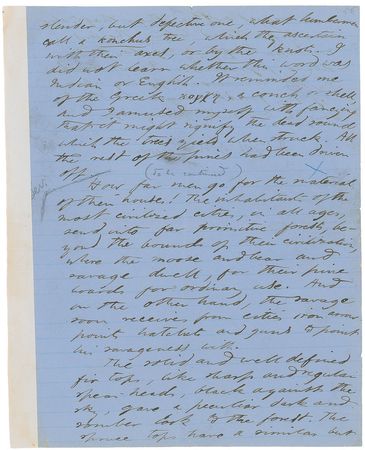 slender but defective one what lumberers
call a konchus tree which they ascertain
with their axes, or by the knots. I
did not learn whether this word was
Indian or English. It reminded me
of the Greek κογχη, a conch or shell,
and I amused myself with fancying
that it might signify the dead sound
which the trees yield when struck. All
the rest of the pines had been driven
off.
(to be continued)
How far men go for the material
of their houses! The inhabitants of the
most civilized cities, in all ages,
send into far primitive forests, be-
yond the bounds of their civilization,
where the moose and bear and
savage dwell, for their pine
boards for ordinary use. And
on the other hand, the savage
soon receives from cities iron arrow
points hatchets and guns to point
his savageness with.
The solid and well defined
fir tops, like sharp and regular
spear-heads, black against the
sky, gave a peculiar dark and
somber look to the forest. The
spruce tops have a similar but